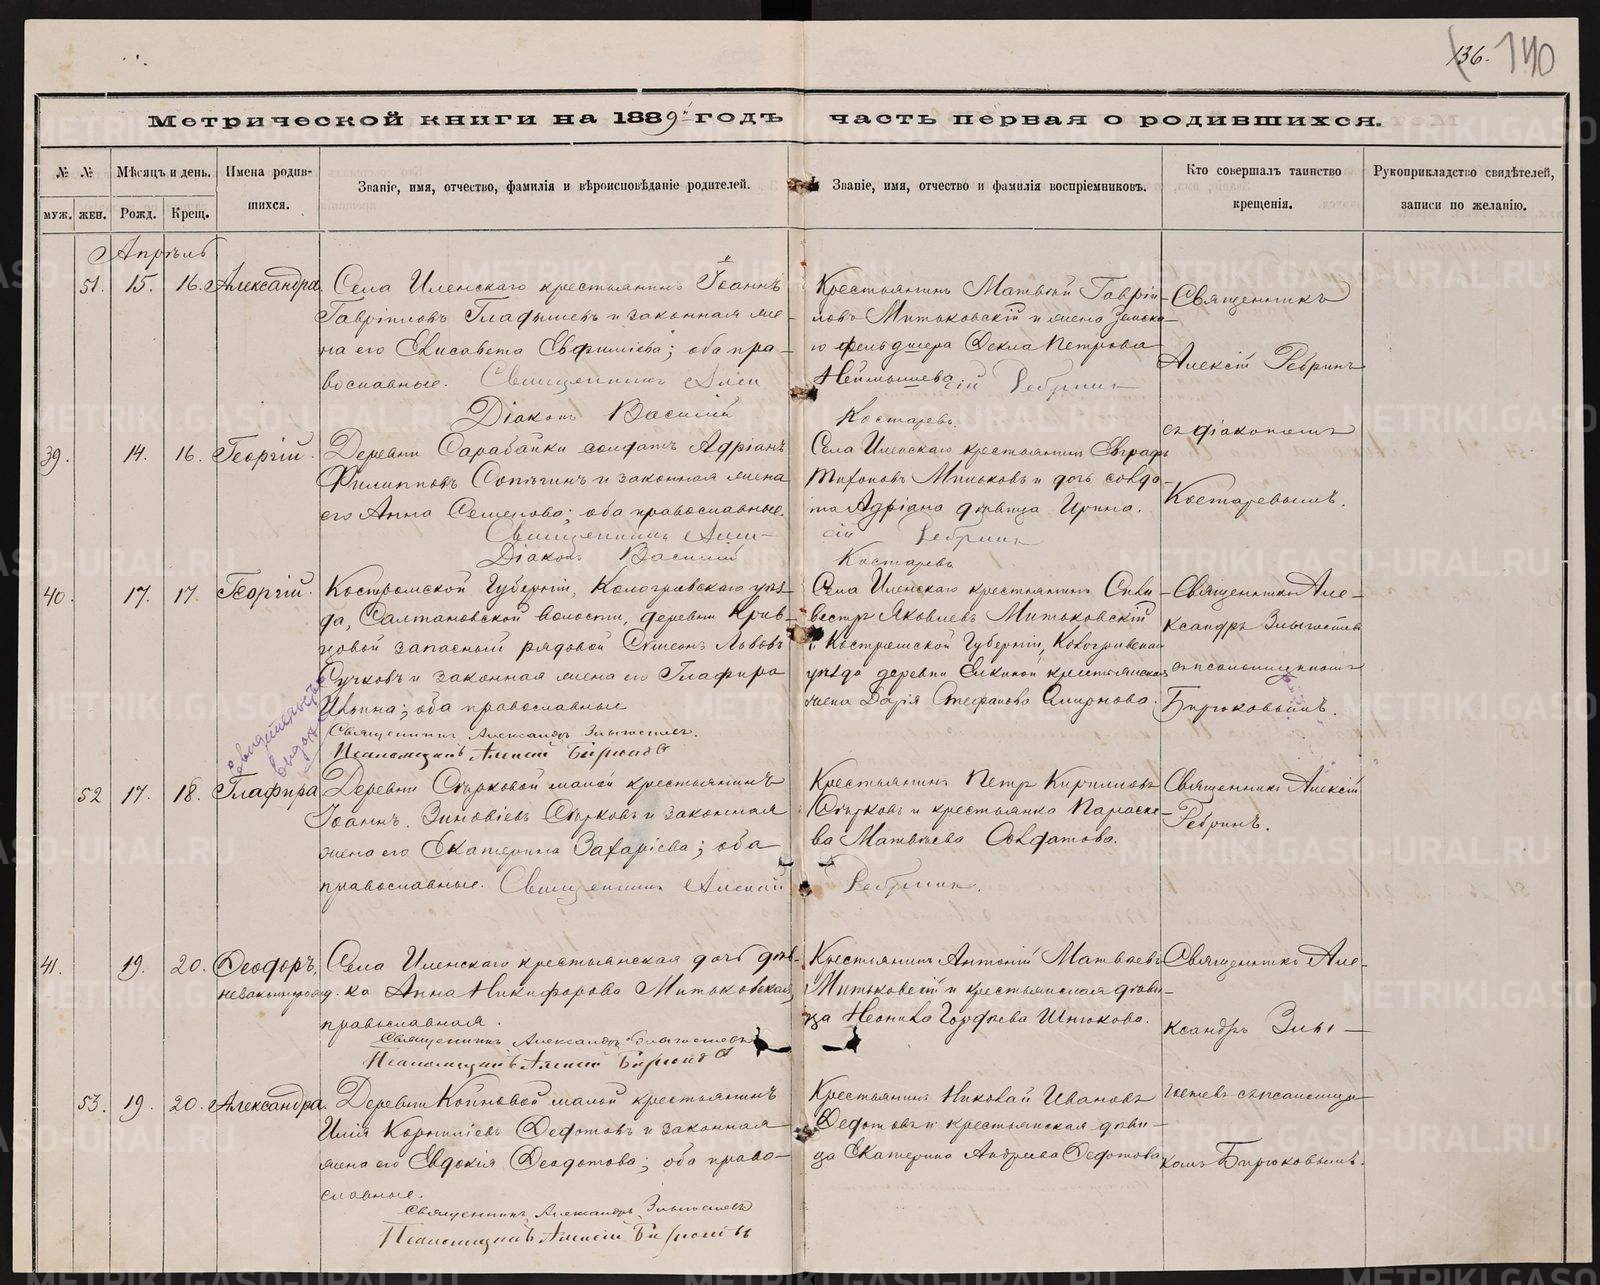 136. 140
Метрической книги на 1889 годъ часть первая о родившихся.
№ №
Мѣсяцъ и день.
Имена родив-
шихся.
Званіе, имя, отчество, фамилія и вѣроисповѣданіе родителей.
Званіе, имя, отчество и фамилія воспріемниковъ.
Кто совершалъ таинство
крещенія.
Рукоприкладство свидѣтелей,
записи по желанію.
муж. жен. Рожд. Крещ.
Апрѣль
51. 15. 16. Александра
Села Иленскаго крестьянинъ Іоаннъ
Гавріиловъ Гладышевъ и законная же-
на его Елисавета Евфиміева; оба пра-
вославные. Священникъ Алек
Діаконъ Василій
Крестьянинъ Матвѣй Гавріи-
ловъ Митьковскій и жена земска-
го фельдшера Ѳекла Петрова
сій Ребринъ
Костаревъ.
Священникъ
Алексій Ребринъ
съ діакономъ
Костаревымъ.
39. 14. 16. Георгій.
Деревни Сарабайки солдатъ Адріанъ
Филипповъ и законная жена
его Анна Семенова; оба православные.
Священникъ Алек-
Діаконъ Василій
Села Иленскаго крестьянинъ Евграфъ
Тихоновъ и дочь солда-
та Адріана дѣвица Ирина.
сій Ребринъ
Костаревъ
40. 17. 17. Георгій.
Костромской Губерніи, Кологривскаго уѣз-
да, Салтановской волости, деревни Крив-
цовой запасный рядовой Симеонъ Львовъ
Сучковъ и законная жена его Глафира
Ильина; оба православные
Священникъ Александръ Злыгостевъ.
Псаломщикъ Алексій Бирюковъ
Села Иленскаго крестьянинъ Силь-
вестръ Яковлевъ Митьковскій
и Костромской Губерніи, Кологривскаго
уѣзда деревни крестьянская
жена Дарія Стефанова Смирнова.
Священникъ Але-
ксандръ Злыгостевъ
съ псаломщикомъ
Бирюковымъ.
свидѣтельство
выдано
52 17. 18. Глафира
Деревни Сѣрковой малой крестьянинъ
Іоаннъ Зиновіевъ Сѣрковъ и законная
жена его Екатерина Захаріева; оба
православные. Священникъ Алексій
Крестьянинъ Петръ Кириловъ
Сѣрковъ и крестьянка Параске-
ва Матвѣева Солдатова.
Ребринъ.
Священникъ Алексій
Ребринъ.
41. 19. 20. Ѳеодоръ,
незаконнорожд.
Села Иленскаго крестьянская дочь дѣв-
ка Анна Никифорова Митьковская,
православная.
Священникъ Александръ Злыгостевъ
Псаломщикъ Алексій Бирюковъ
Крестьянинъ Антоній Матвѣевъ
Митьковскій и крестьянская дѣви-
ца Неонила Гордѣева
Священникъ Але-
ксандръ Злы-
53. 19. 20. Александра.
Деревни Койновой малой крестьянинъ
Илія Корниліевъ Ѳедотовъ и законная
жена его Евдокія Ѳеодотова; оба право-
славные.
Священникъ Александръ Злыгостевъ
Псаломщикъ Алексій Бирюковъ
Крестьянинъ Николай Ивановъ
Ѳедотовъ и крестьянская дѣви-
ца Екатерина Андреева Ѳедотова
гостевъ съ псаломщи-
комъ Бирюковымъ.
METRIKI.GASO-URAL.RU